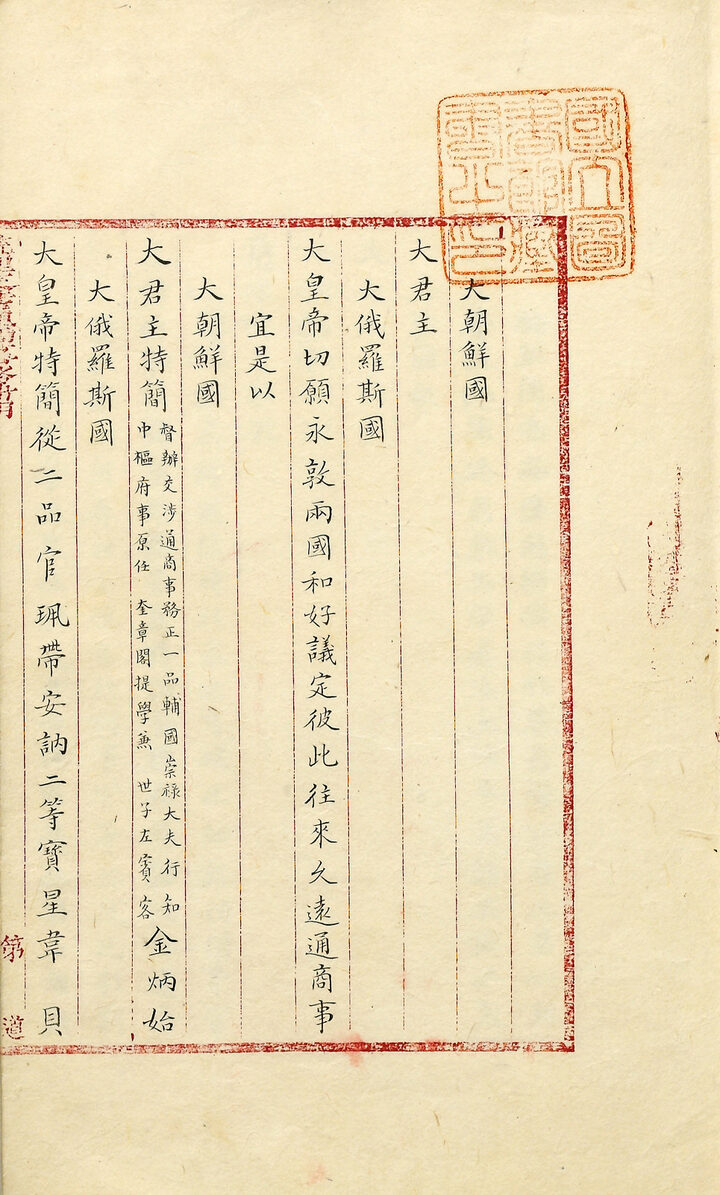 國立圖
書館藏
書之印
大朝鮮國
大君主
大俄羅斯國
大皇帝切願永敦兩國和好議定彼此往來久遠通商事
宜是以
大朝鮮國
大君主特簡
督辦交涉通商事務正一品輔國崇祿大夫行知
中樞府事原任 奎章閣提學兼 世子左賓客
金炳始
大俄羅斯國
大皇帝特簡從二品官珮帶安訥二等寶星韋 貝
第 道